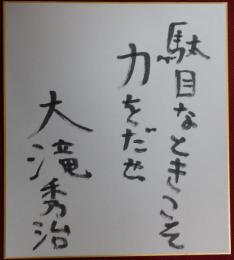 駄目なときこそ
力をだせ
大滝秀治